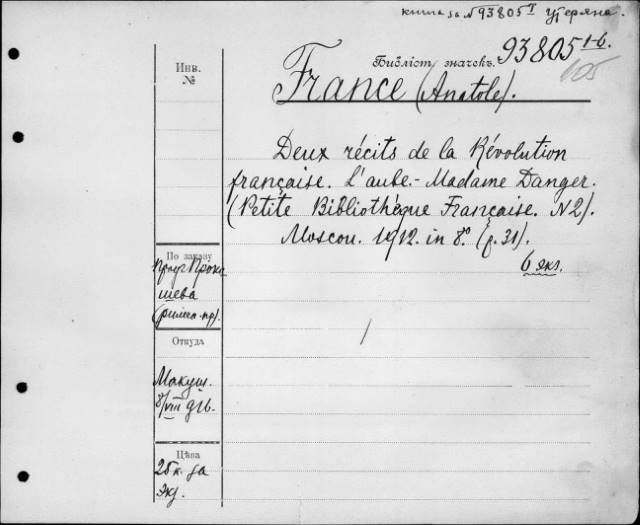 книга за № 93805 I утеряна.
Библіот. значокъ. 93805 1-6.
105
Инв.
№
France (Anatole).
Deux récits de la Révolution
française. L'aube. - Madame Danger.
(Petite Bibliothèque Française. N2).
Moscou. 1912. in 8º (p. 31).
6 экз.
По заказу
шева
Откуда
Макуш.
8/VIII
Цѣна
25 к. за
экз.